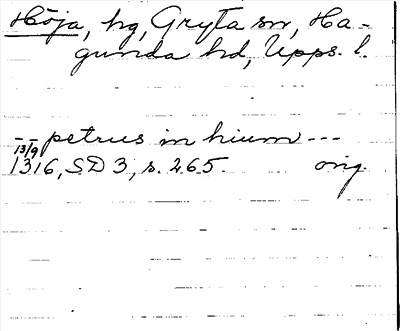 Höja, hg, Gryta sn, Ha-
gunda hd, Upps. l.
-- petrus in hium ---
13/9
1316, SD 3, s. 265. orig.